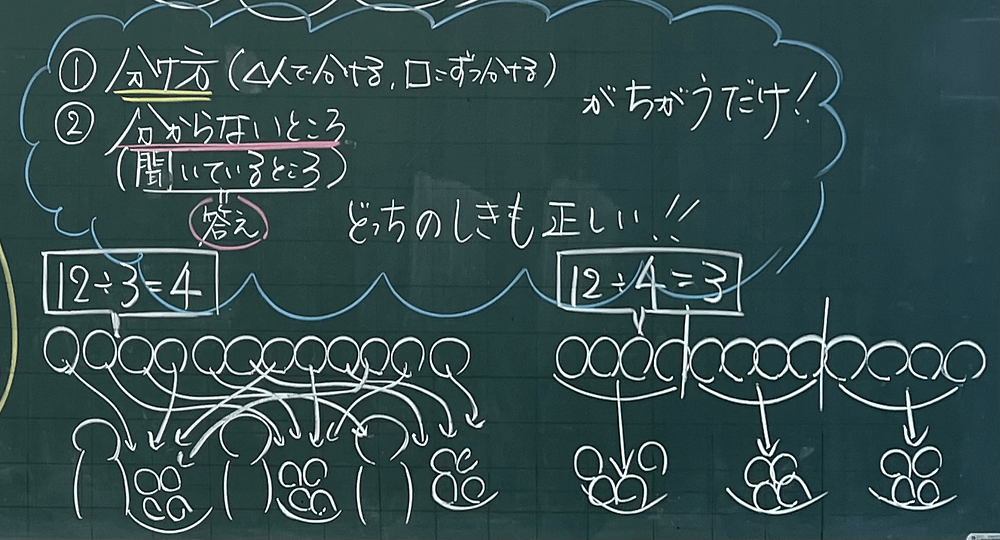 ① 分け方（△人で分ける、□こずつ分ける）
② 分からないところ
（聞いているところ）
答え
がちがうだけ！
どっちのしきも正しい!!
12÷3=4
12÷4=3